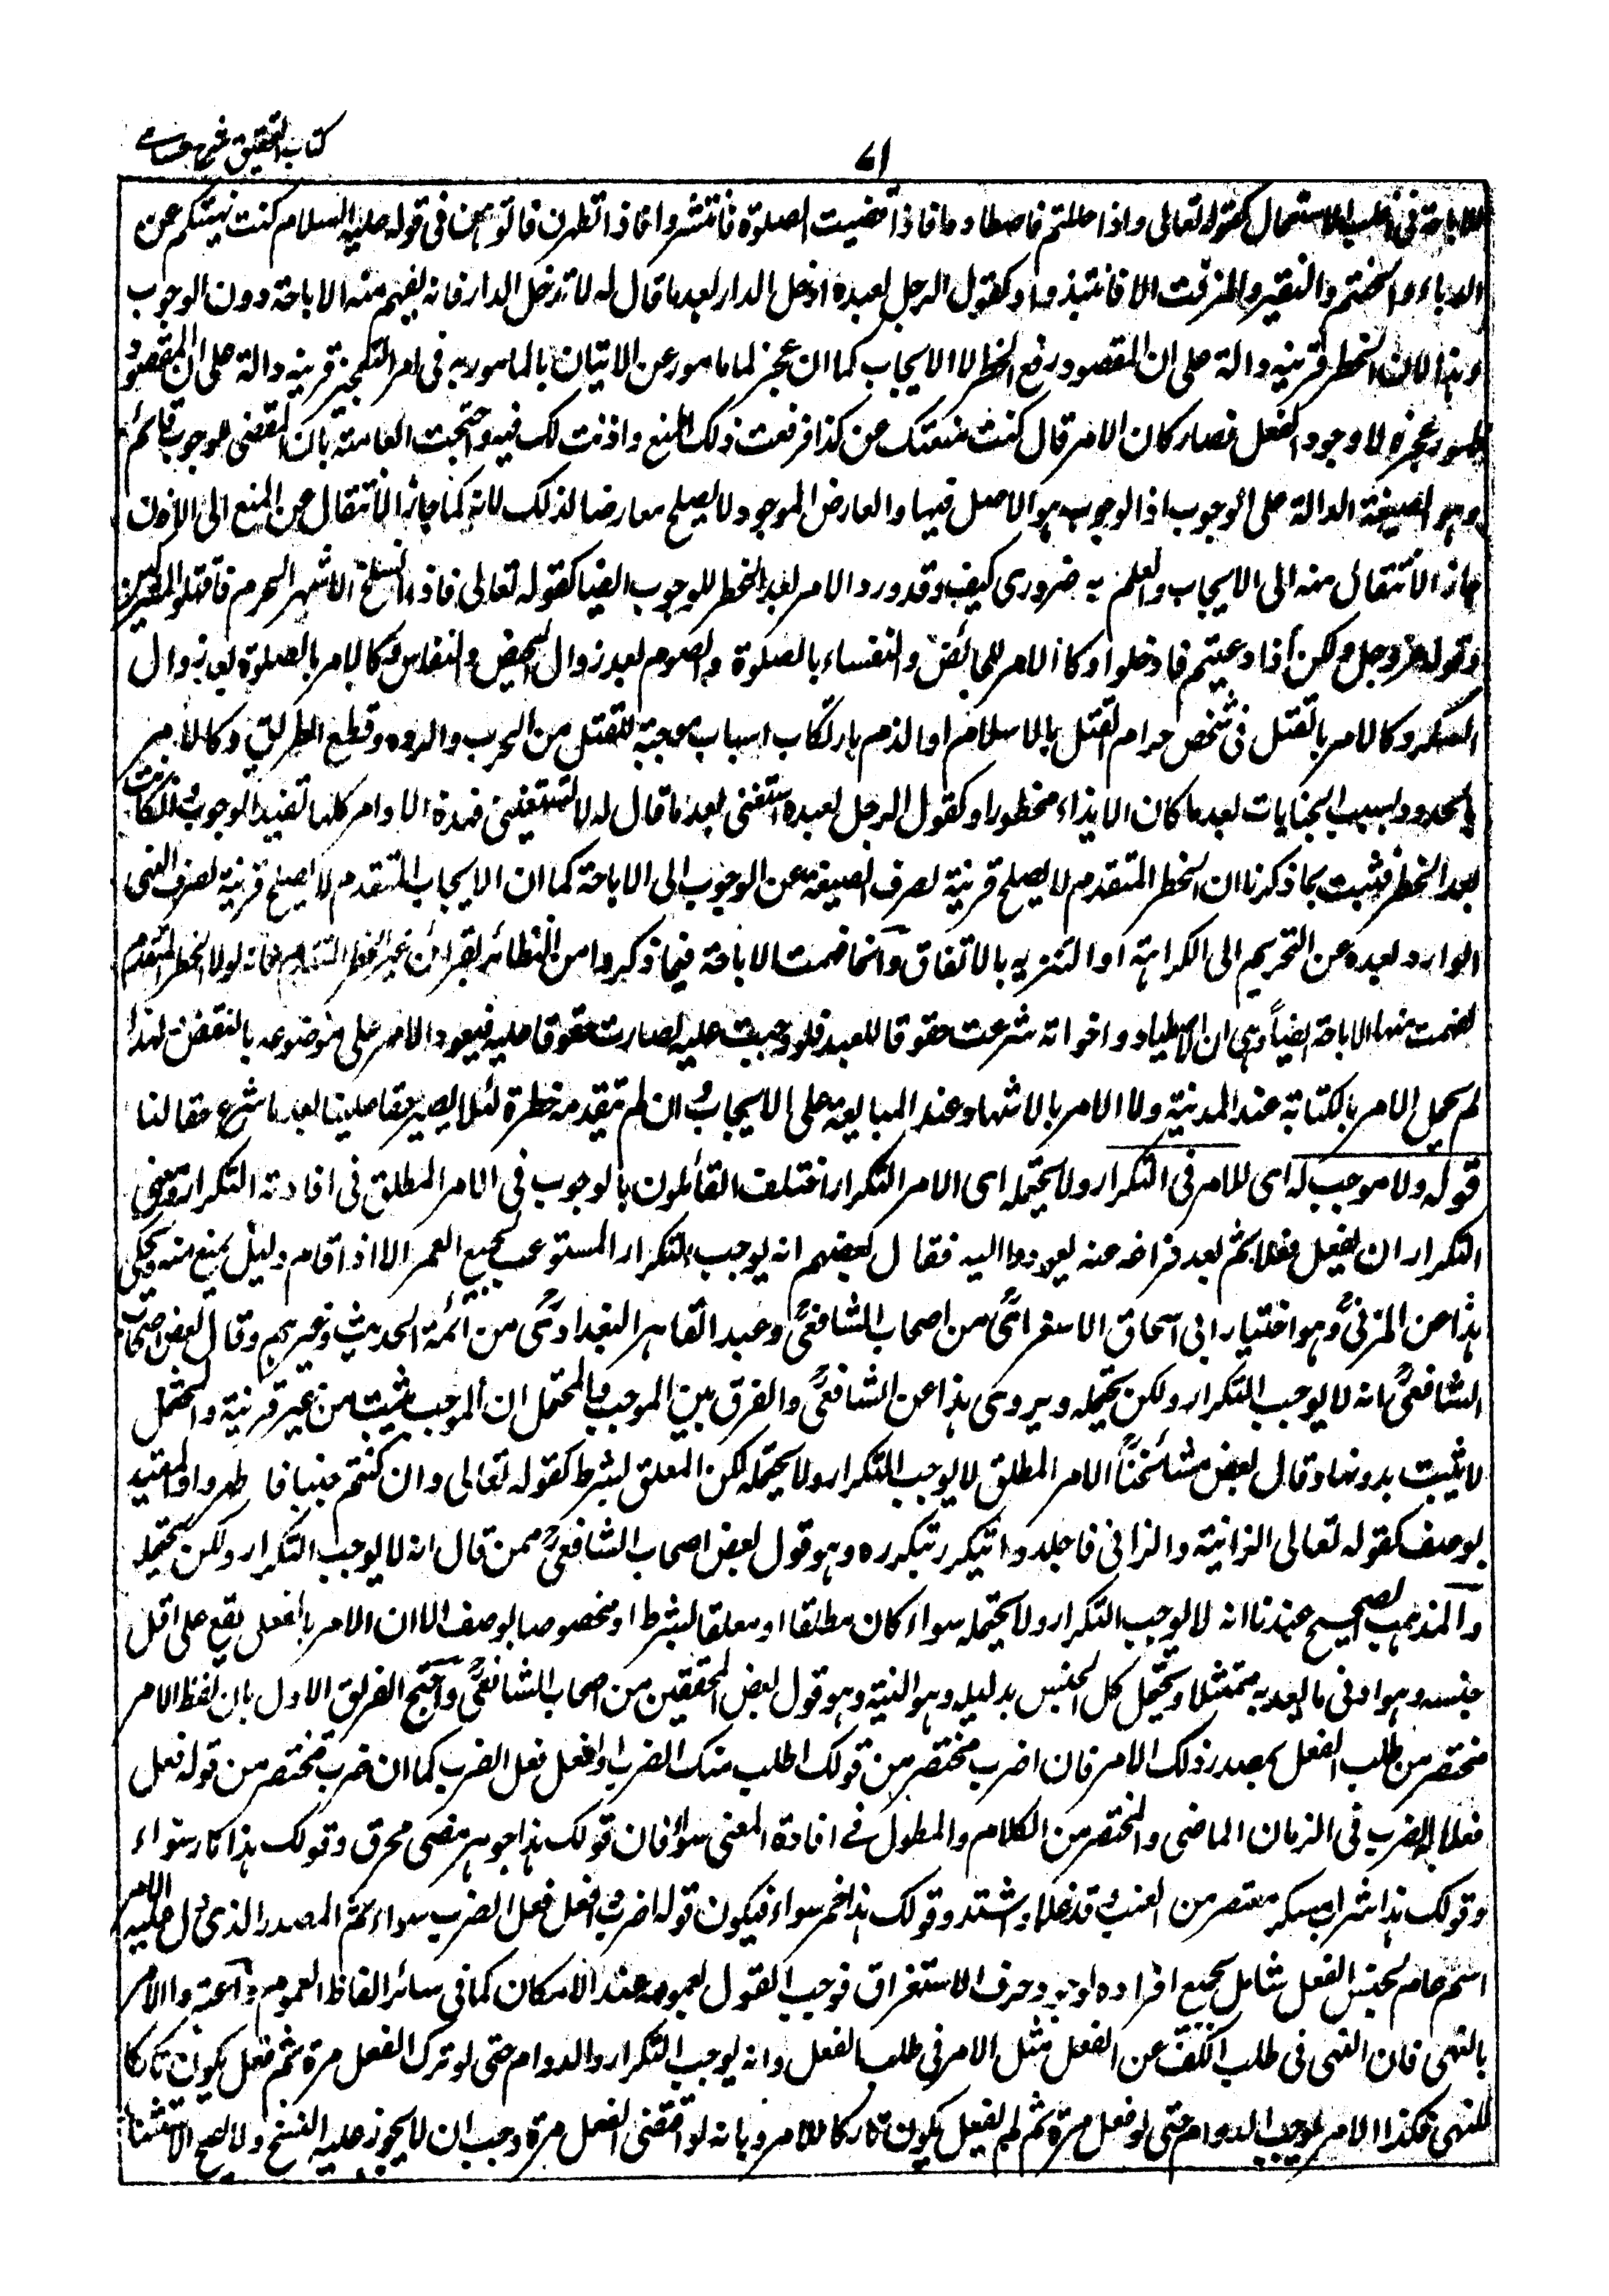 كتاب التحقيق شرح حسامی
۷۱
للاباحة فى اغلب الاستعمال كقوله تعالى واذا حللتم فاصطادوا فاذا قضيت الصلوة فانتشروا فاذا تطهرن فاتوهن فى قوله عليه السلام كنت نهيتكم عن
الدباء والحنتم والنقير والمزفت الا فانتبذوا وكقول الرجل لعبده ادخل الدار بعد ما قال له لا تدخل الدار فانه يفهم منه الاباحة دون الوجوب
وهذا لان الحظر قرينة دالة على ان المقصود رفع الحظر لا الايجاب كما ان عجز المامور عن الاتيان بالمامور به فى امر التعجيز قرينة دالة على ان المقصود
ظهور عجزه لا وجود الفعل فصار كان الامر قال كنت منعتك عن كذا فرفعت ذلك المنع واذنت لك فيه واحتجت العامة بان المقتضى للوجوب قائم
وهو الصيغة الدالة على الوجوب اذ الوجوب هو الاصل فيها والعارض الموجود لا يصلح معارضا لذلك لانه كما جاز الانتقال من المنع الى الاذن
جاز الانتقال منه الى الايجاب والعلم به ضرورى كيف وقد ورد الامر بعد الحظر للوجوب ايضا كقوله تعالى فاذا انسلخ الاشهر الحرم فاقتلوا المشركين
وقوله عز وجل ولكن اذا دعيتم فادخلوا وكالامر للحائض والنفساء بالصلوة والصوم بعد زوال الحيض والنفاس وكالامر بالصلوة بعد زوال
السكر وكالامر بالقتل فى شخص حرام القتل بالاسلام او الذمم بارتكاب اسباب موجبة للقتل من الحرب والردة وقطع الطريق وكالامر
بالحدود بسبب الجنايات بعد ما كان الايذاء محظورا وكقول الرجل لعبده استغنى بعد ما قال له لا تستغنى فهذه الاوامر كلها تفيد الوجوب وان كانت
بعد الحظر فثبت بما ذكرنا ان الحظر المتقدم لا يصلح قرينة لصرف الصيغة عن الوجوب الى الاباحة كما ان الايجاب المتقدم لا يصلح قرينة لصرف النهى
الوارد بعده عن التحريم الى الكراهة او التنزيه بالاتفاق وانما فهمت الاباحة فيما ذكروا من النظائر بقرائن غير الحظر المتقدم فانه لولا الحظر المتقدم
لفهمت منها الاباحة ايضا وهى ان الاصطياد واخواته شرعت حقوقا للعبد فلو وجبت عليه لصارت حقوقا عليه فيعود الامر على موضوعه بالنقض لهذا
لم يحمل الامر بالكتابة عند المداينة ولا الامر بالاشهاد عند المبايعة على الايجاب وان لم يتقدمه حظرة لئلا يصير حقا علينا بعد ما شرع حقا لنا
قوله ولا موجب له اى للامر فى التكرار ولا يحتمله اى الامر التكرار اختلف القائلون بالوجوب فى الامر المطلق فى افادته التكرار ومعنى
التكرار ان يفعل فعلا ثم بعد فراغه عنه يعود اليه فقال بعضهم انه يوجب التكرار المستوعب لجميع العمر الا اذا قام دليل يمنع منه ويحكى
هذا عن المزنى وهو اختيار ابى اسحاق الاسفرائنى من اصحاب الشافعى وعبد القاهر البغدادى من ائمة الحديث وغيرهم وقال بعض اصحاب
الشافعى انه لا يوجب التكرار ولكن يحتمله ويروى هذا عن الشافعى والفرق بين الموجب والمحتمل ان الموجب يثبت من غير قرينة والمحتمل
لا يثبت بدونها وقال بعض مشائخنا الامر المطلق لا يوجب التكرار ولا يحتمله لكن المعلق بشرط كقوله تعالى وان كنتم جنبا فاطهروا والمقيد
بوصف كقوله تعالى الزانية والزانى فاجلدوا تيكرر بتكرره وهو قول بعض اصحاب الشافعى ممن قال انه لا يوجب التكرار ولكن يحتمله
والمذهب الصحيح عندنا انه لا يوجب التكرار ولا يحتمله سواء كان مطلقا او معلقا بشرط او مخصوصا بوصف الا ان الامر بالفعل يقع على اقل
جنسه وهو ادنى ما يعد به ممتثلا ويحتمل كل الجنس بدليله وهو النية وهو قول بعض المحققين من اصحاب الشافعى واحتج الفريق الاول بان لفظ الامر
مختصر من طلب الفعل بمصدر ذلك الامر فان اضرب مختصر من قولك اطلب منك الضرب وافعل فعل الضرب كما ان ضرب مختصر من قوله فعل
فعل الضرب فى الزمان الماضى والمختصر من الكلام والمطول فى افادة المعنى سواء فان قولك هذا جوهر مضى محرق وقولك هذا نار سواء
وقولك هذا شراب مسكر معتصر من العنب وقد غلا واشتد وقولك هذا خمر سواء فيكون قوله اضرب وافعل فعل الضرب سواء ثم المصدر الذى دل عليه الامر
اسم عام لجنس الفعل شامل لجميع افراده لوجود حرف الاستغراق فوجب القول بعمومه عند الامكان كما فى سائر الفاظ العموم واعتبروا الامر
بالنهى فان النهى فى طلب الكف عن الفعل مثل الامر فى طلب الفعل وانه يوجب التكرار والدوام حتى لو ترك الفعل مرة ثم فعل يكون تاركا
للنهى فكذا الامر يوجب الدوام حتى لو فعل مرة ثم لم يفعل يكون تاركا للامر وبانه لو اقتضى الفعل مرة وجب ان لا يجوز عليه النسخ ولا يصح الاستثناء